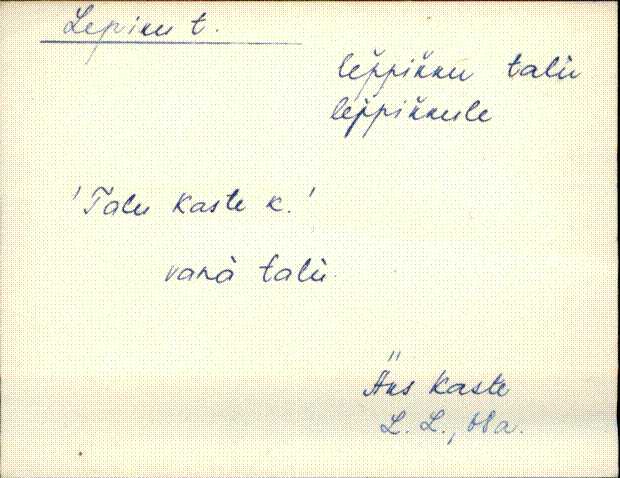 Lepiku t.
lep̆pik̆ku talù
lep̆pik̆kule
'Talu Kaste k.'
vanà talù
Äks Kaste
L. L., 68a.